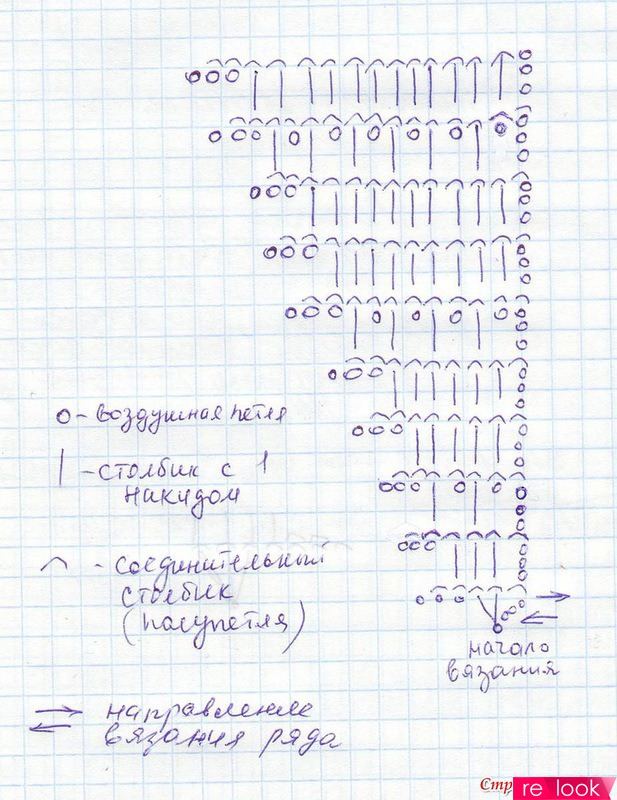 o - воздушная петля
| - столбик с 1
накидом
⌒ - соединительный
столбик
(полупетля)
начало
вязания
направление
вязания ряда
Стр
re look